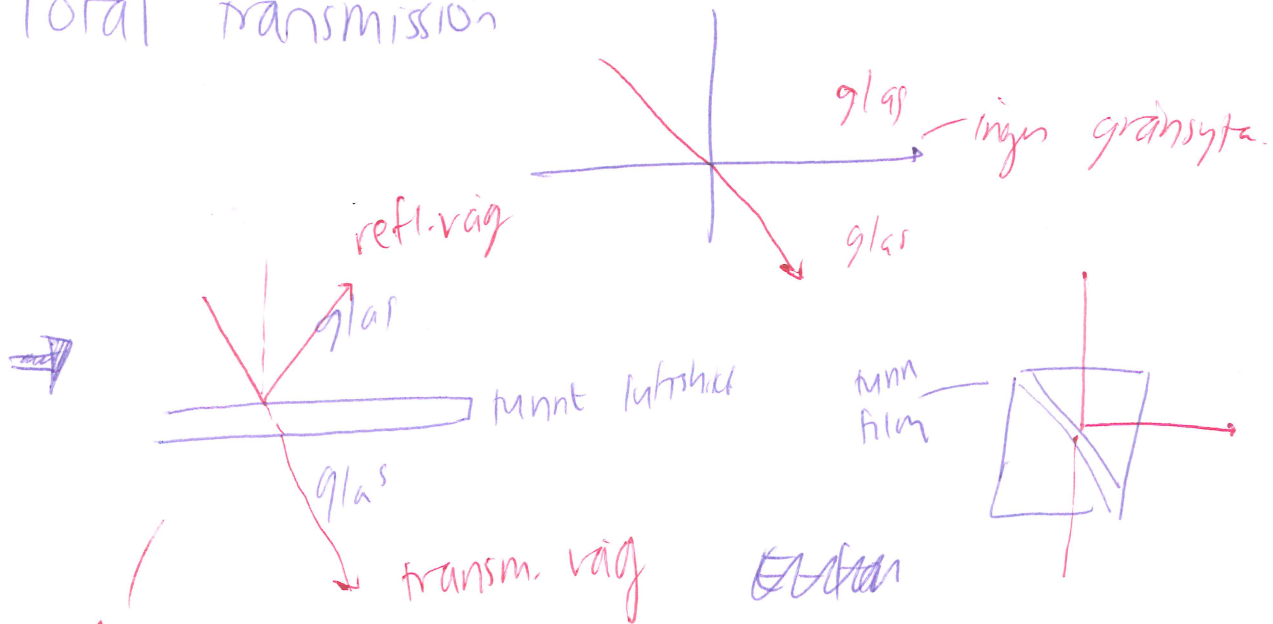 Total transmission
glas
ingen gränsyta.
glas
refl.våg
glas
tunnt luftskikt
glas
transm. våg
tunn
film